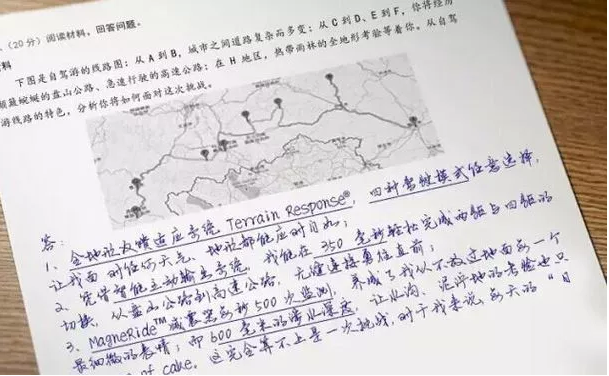 （20分）阅读材料，回答问题。
料
下图是自驾游的线路图：从A到B，城市之间道路复杂而多变；从C到D、E到F，你将经历
颠簸蜿蜒的盘山公路、急速行驶的高速公路；在H地区，热带雨林的全地形考验等着你。从自驾
游线路的特色，分析你将如何面对这次挑战。
答：
1、全地形反馈适应系统 Terrain Response®，四种驾驶模式任意选择，
让我面对任何天气、地形都能应对自如；
2、凭借智能主动输出系统，我能在350毫秒轻松完成两驱与四驱的
切换，从盘山公路到高速公路，无缝连接勇往直前；
3、MagneRide™减震器每秒500次监测，养成了我从不放过地面每一个
最细微的表情；即600毫米的涉水深度，让水沟、泥泞地的考验也只
of cake。这完全算不上是一次挑战，对于我来说，每天的“日